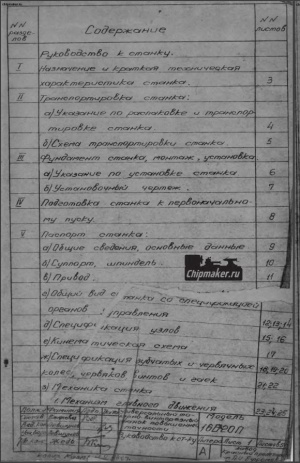 NN разде-лов
Содержание
NN листов
Руководство к станку.
I Назначение и краткая техническая
характеристика станка. 3
II Транспортировка станка:
а) Указание по распаковке и транспор-
тировке станка 4
б) Схема транспортировки станка 5
III Фундамент станка, монтаж, установка
а) Указание по установке станка 6
б) Установочный чертеж. 7
IV Подготовка станка к первоначально-
му пуску 8
V Паспорт станка:
а) Общие сведения, основные данные 9
б) Суппорт, шпиндель. 10
в) Привод. 11
Chipmaker.ru
г) Общий вид станка со спецификацией
органов управления
д) Спецификация узлов 12,13,14
е) Кинематическая схема 15-16
ж) Спецификация зубчатых и червячных 17
колес, червяков винтов и гаек
з) Механика станка 21,22
1. Механизм главного движения 23,24,25
Модель
16Б20П
Руководство к ст-ку
А